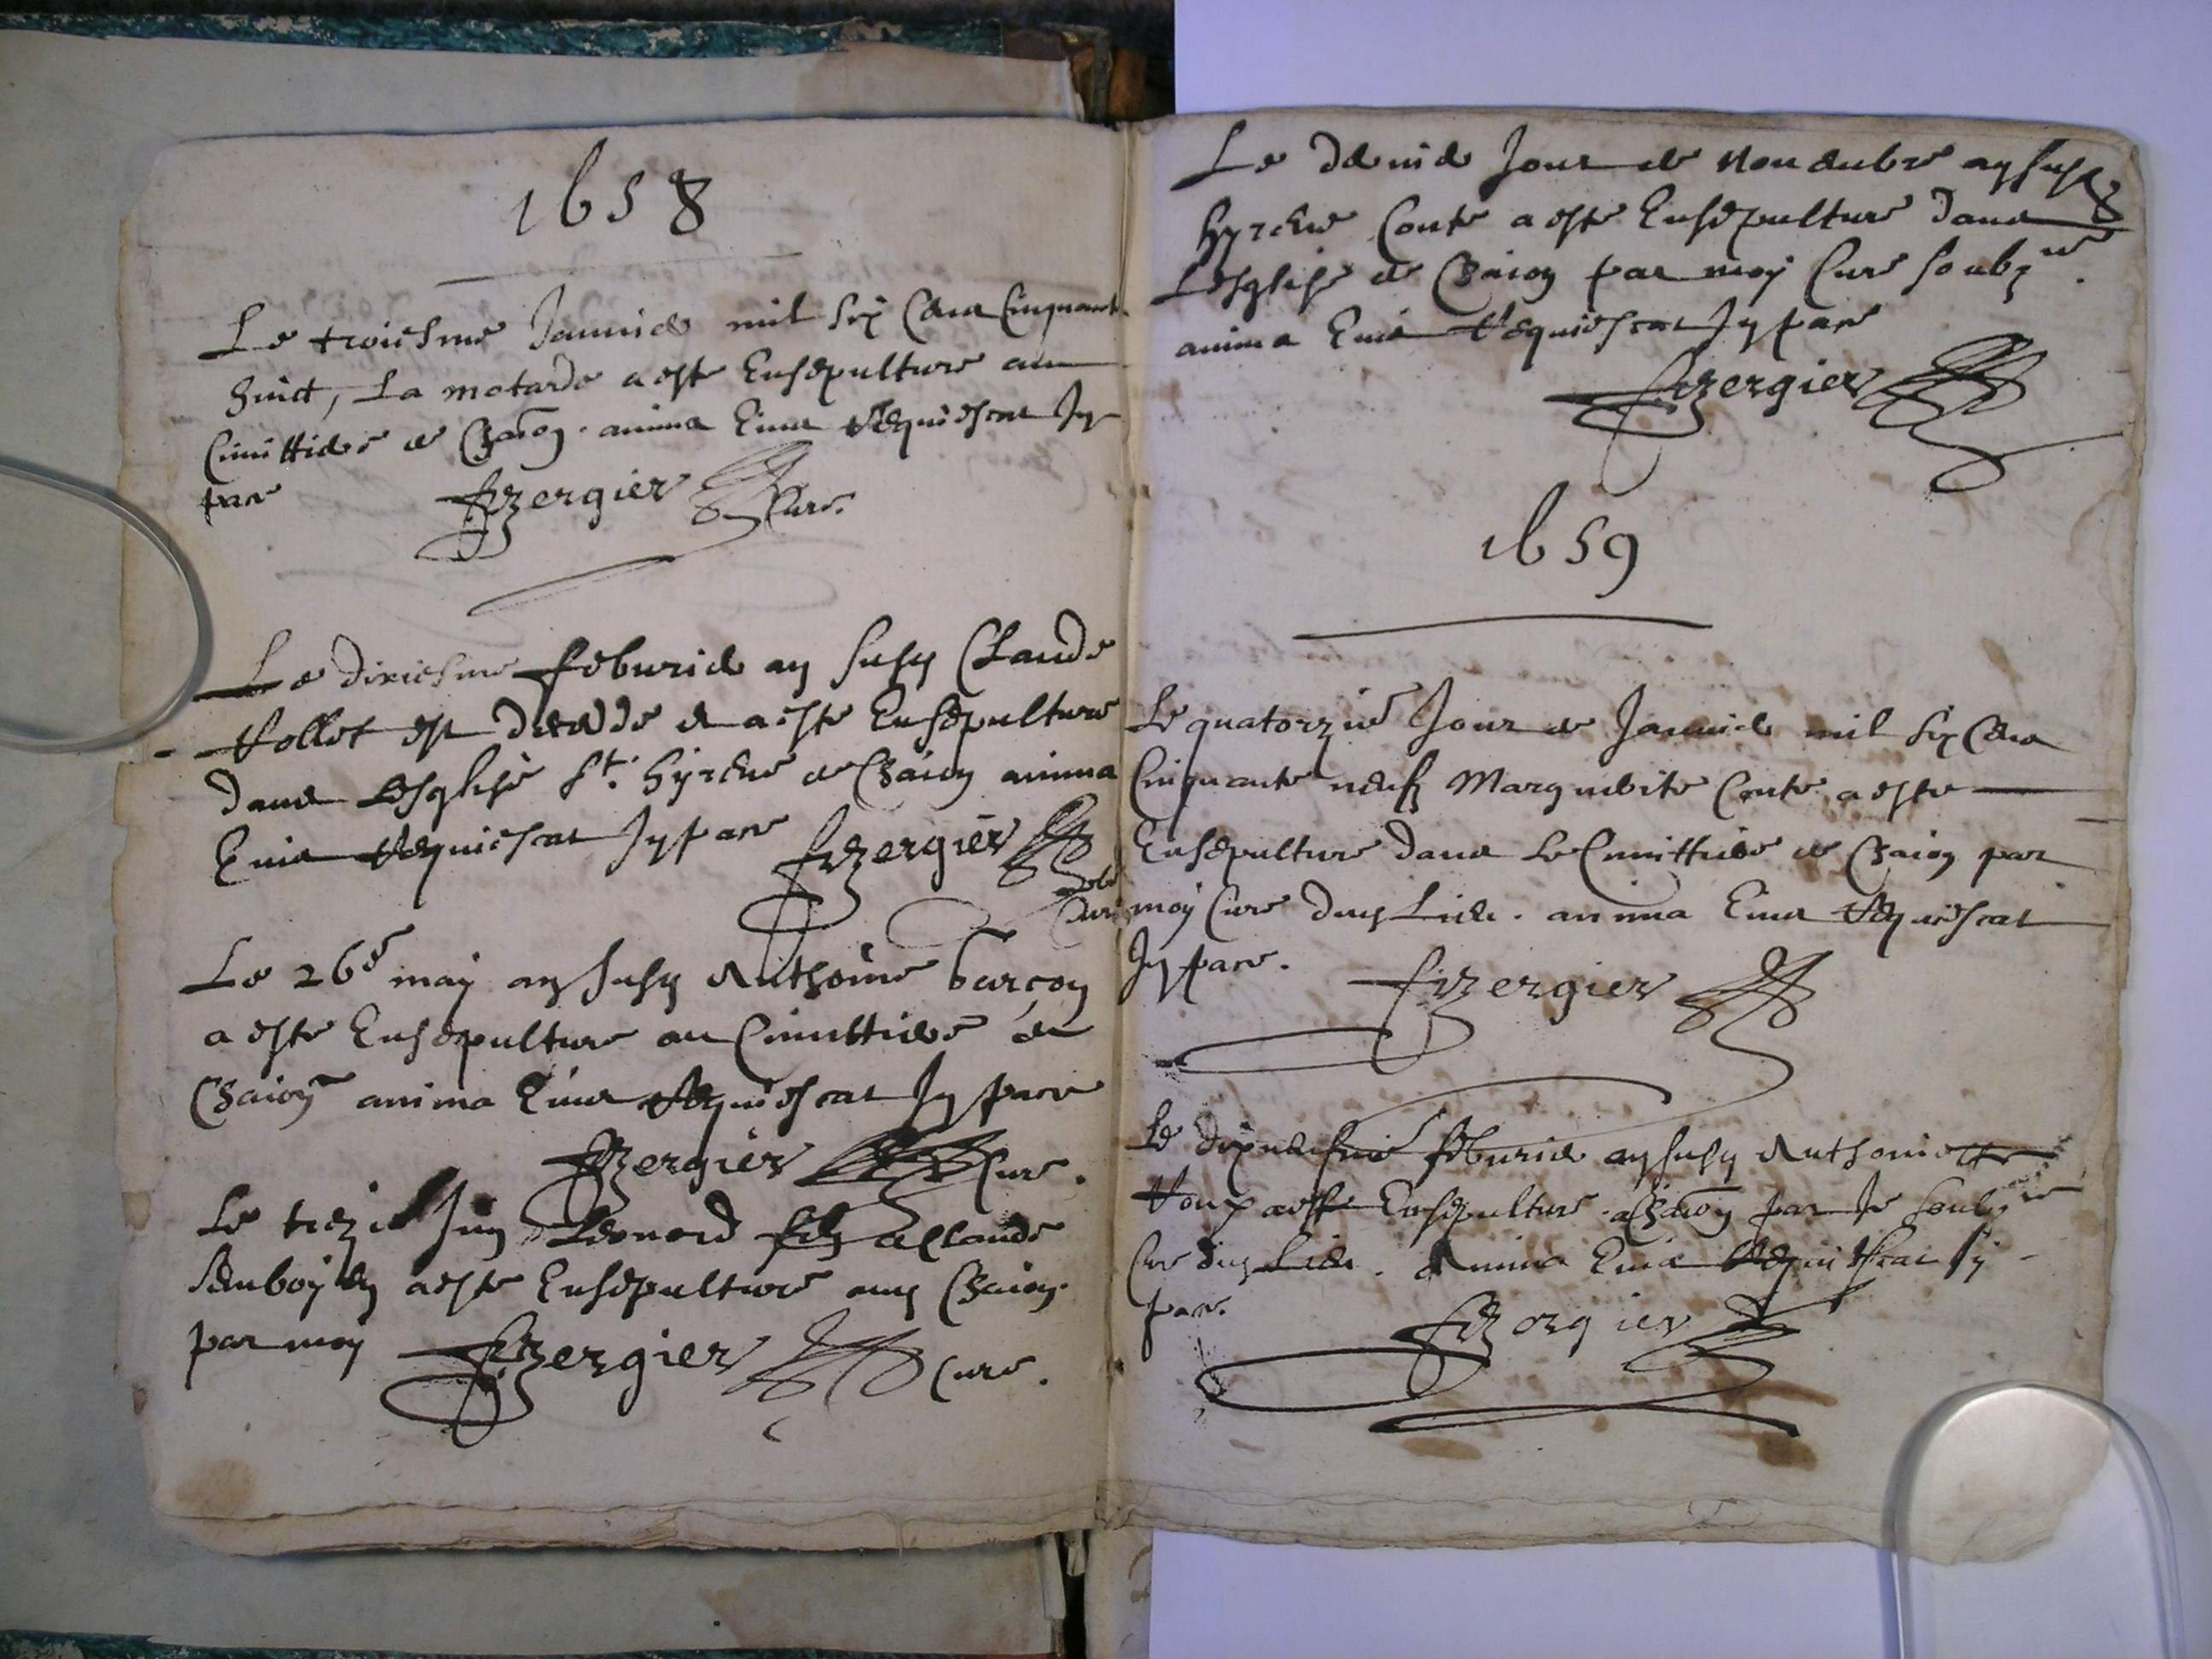 1658
Le troiesme Januier mil six Cens Cinquante
huict, La motarde a este Ensepulture au
Cimittiere de Chaion. anima Eius Requiescat In
pace Fr Bergier Cure.
Le dixiesme feburier an susd Claude
Rollet est decedde et a este Ensepulture
dans Lesglise St. hyrene de Chaion anima
Eius Requiescat In pace Fr Bergier
Cure
Le 26e may an susd Anthoine barcon
a este Ensepulture au Cimittiere de
Chaion anima Eius Requiescat In pace
Fr Bergier Cure.
Le trezie Juin Leonard fils a Claude
a este Ensepulture aud Chaion
par moy Fr Bergier Cure.
Le dernier Jour de Nouembre an susd
hyrene Conte a este Ensepulture dans
Lesglise de Chaion par moy Cure soubzne.
anima Eius Requiescat In pace
Fr Bergier
1659
Le quatorzie Jour de Januier mil six Cens
Cinquante neuf Marguerite Conte a este
Ensepulture dans Le Cimittiere de Chaion par
moy Cure dud Lieu. anima Eius Requiescat
In pace. Fr Bergier
Le dixneufme feburier an susd Anthoinette
Roux a este Ensepulture a Chaion par Je soubzne
Cure dud Lieu. Anima Eius Requiescat In
pace. Fr Bergier